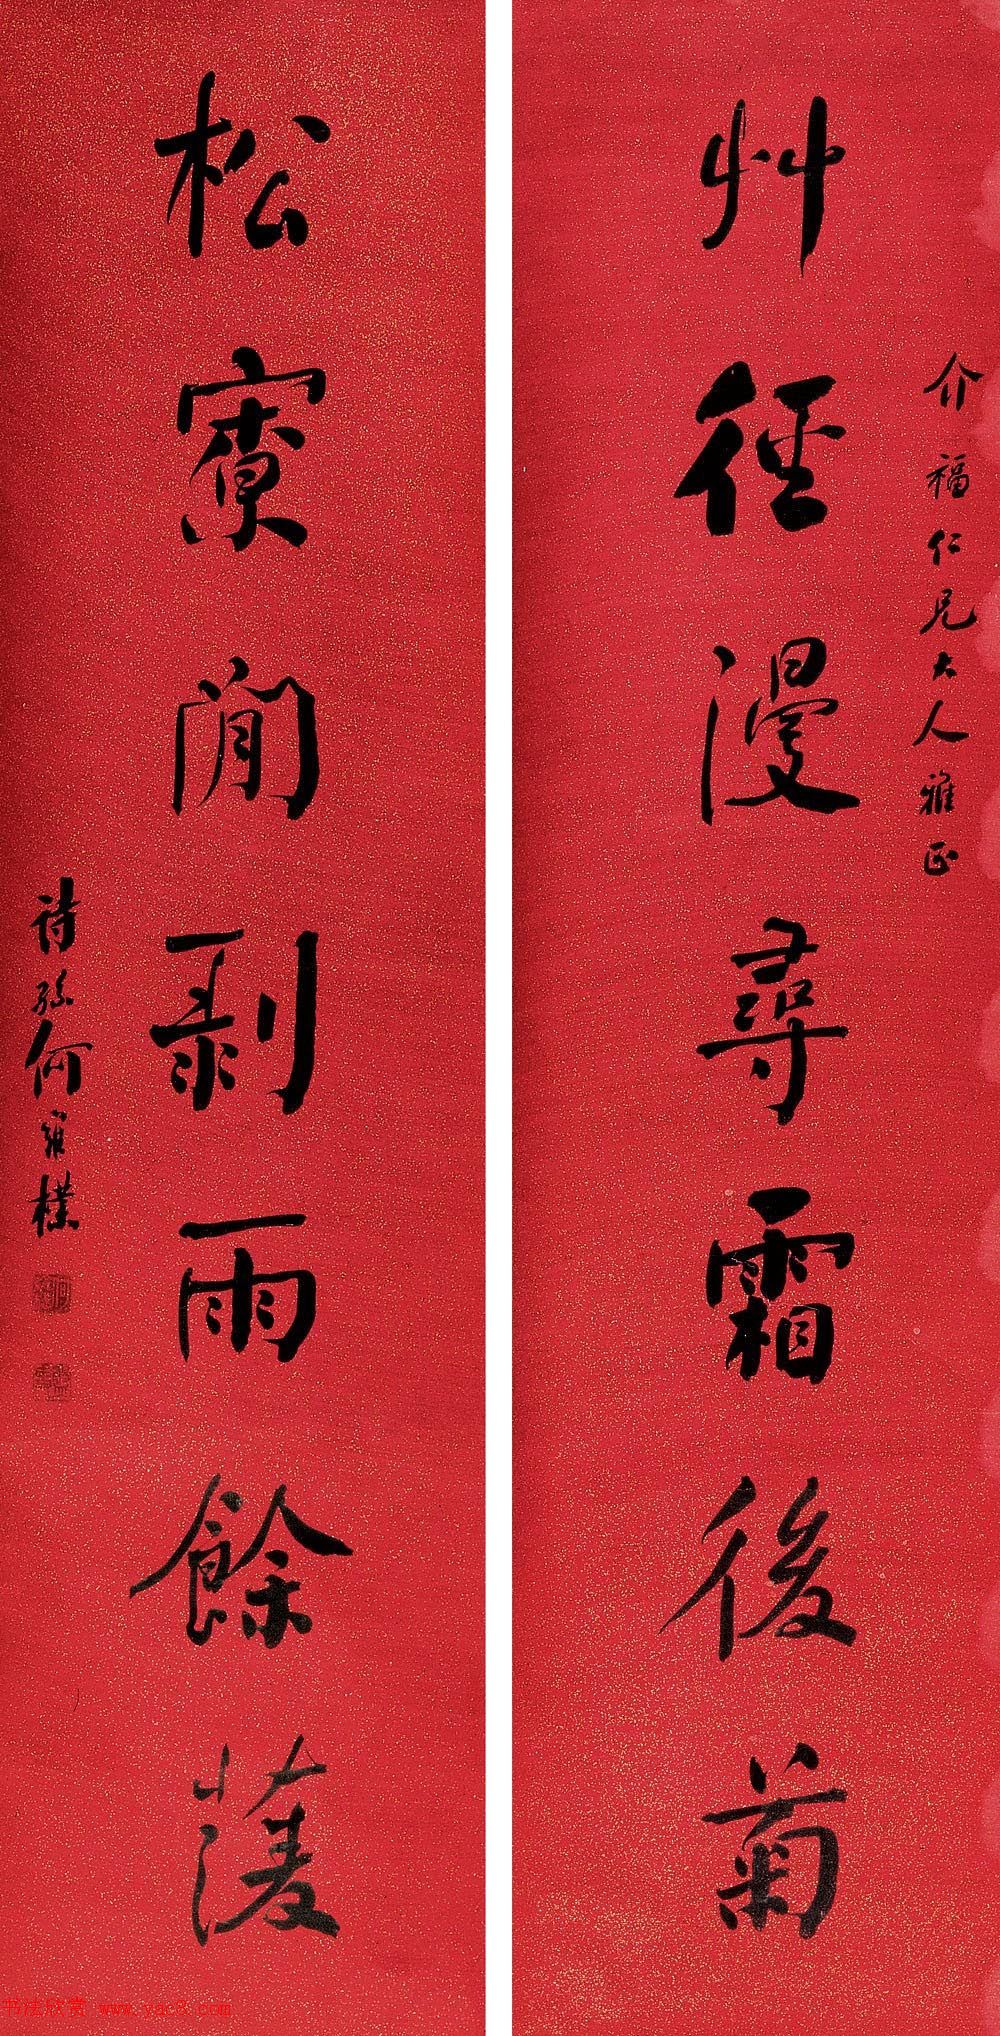 介福仁兄大人雅正
艸徑漫尋霜後菊
松寮閒剥雨餘蔆
詩孫何維樸
书法欣赏 www.yac8.com